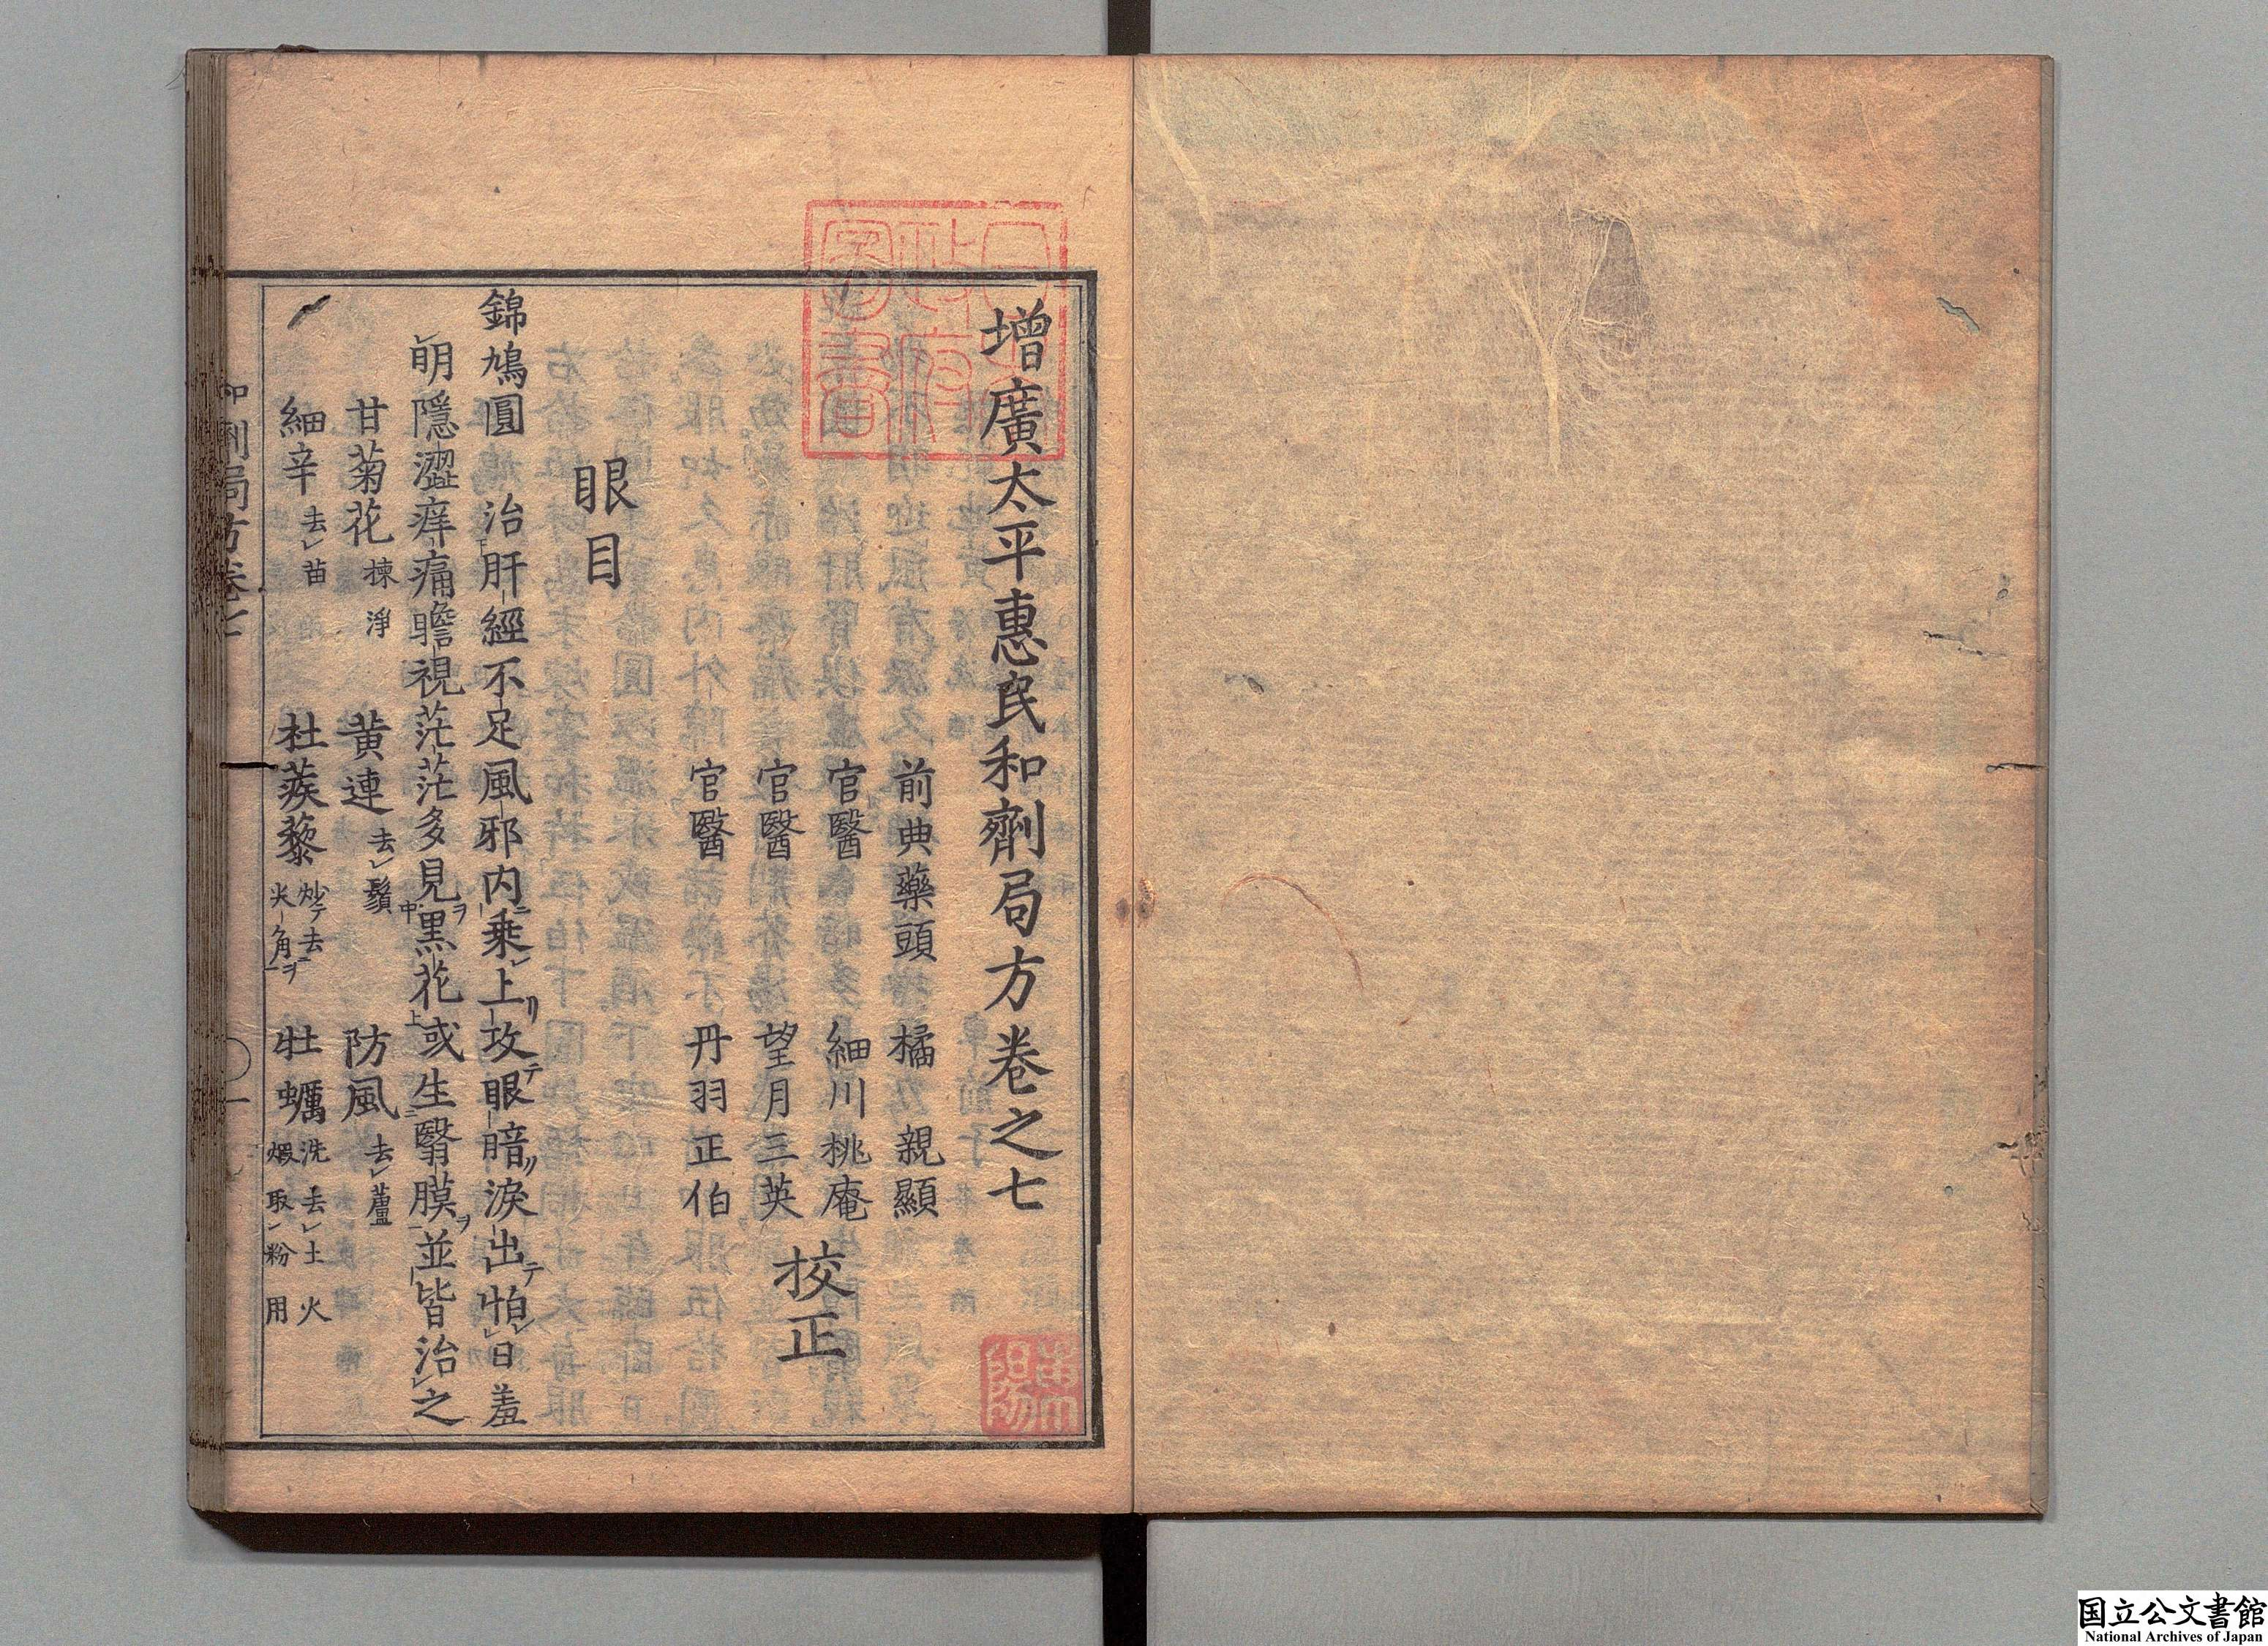 增廣太平惠民和劑局方卷之七
前典藥頭 橘 親顯
官醫 細川桃庵
官醫 望月三英
官醫 丹羽正伯
校正
眼目
錦鳩圓 治肝經不足風邪内乗上攻眼暗淚出怕日羞
明隱澀痒痛瞻視茫茫多見黒花或生翳膜並皆治之
甘菊花 揀淨 黄連 去鬚 防風 去蘆
細辛 去苗 杜蒺藜 炒去尖角 牡蠣 洗去土火煅取粉用
和劑局方卷七
国立公文書館
National Archives of Japan